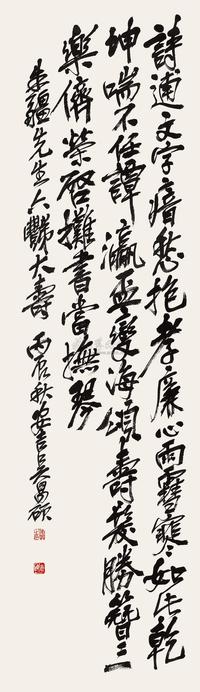 詩逋文字瘖愁抱孝廉心雨雪寒如此乾
坤喘不任譚瀛盃變海頌壽髮勝簪三
樂儕榮啓攤書當撫琴
疆先生六豑大壽 丙辰秋安吉吳昌碩